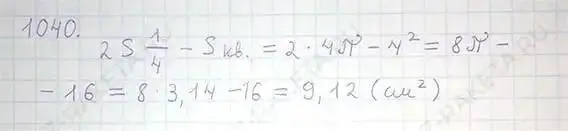 1040.
2 S 1/4 - S кв. = 2 · 4π - 4² = 8π -
- 16 = 8 · 3,14 - 16 = 9,12 (см²)